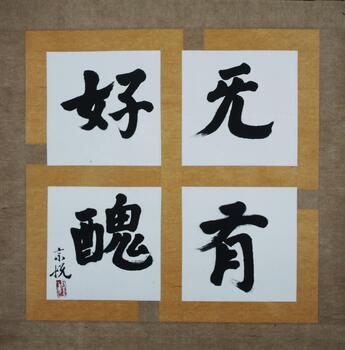 无有
好醜
宗悦